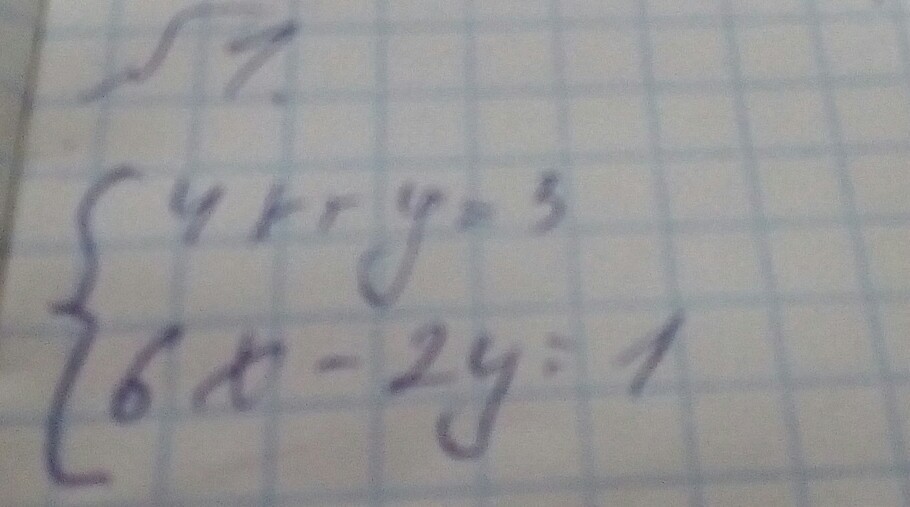 √1.
4x+y=3
6x-2y=1